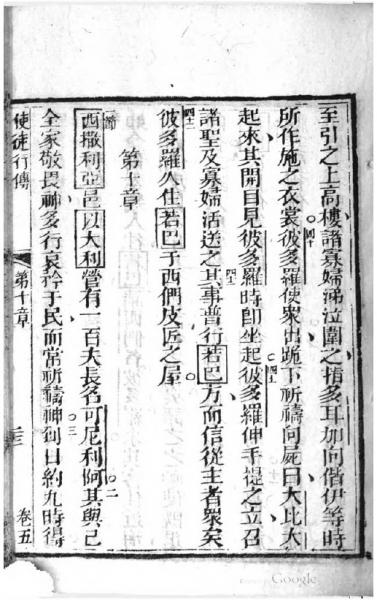 至引之上高樓諸寡婦涕泣圍之指多耳加向偕伊等時
所作施之衣裳。四十彼多羅使衆出跪下祈禱向屍曰大比大
起來其開目見彼多羅時卽坐起。四十一彼多羅伸手提之立召
諸聖及寡婦活送之。四十二其事普行若巴方而信從主者衆矣
四十三彼多羅久住若巴于西們皮匠之屋。
第十章
一節西撒利亞邑以大利營有一百夫長名可尼利阿。二其與己
全家敬畏神多行哀矜于民而常祈禱神。三到日約九時得
使徒行傳
第十章
卷五
Google